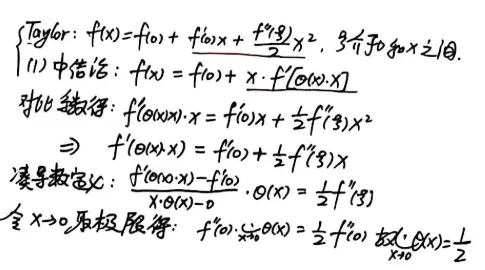 Taylor: f(x)=f(0)+f'(0)x+\frac{f''(ξ)}{2}x², ξ介于0和x之间.
(1)中结论: f(x)=f(0)+x·f'[θ(x)·X]
对比二者得: f'(θ(x)x)·x=f'(0)x+\frac{1}{2}f''(ξ)x²
⇒ f'(θ(x)·x)=f'(0)+\frac{1}{2}f''(ξ)x
凑导数定义: \frac{f'(θ(x)·x)-f'(0)}{x·θ(x)-0}·θ(x)=\frac{1}{2}f''(ξ)
令x→0取极限得: f''(0)·\lim_{x→0}θ(x)=\frac{1}{2}f''(0) 故\lim_{x→0}θ(x)=\frac{1}{2}